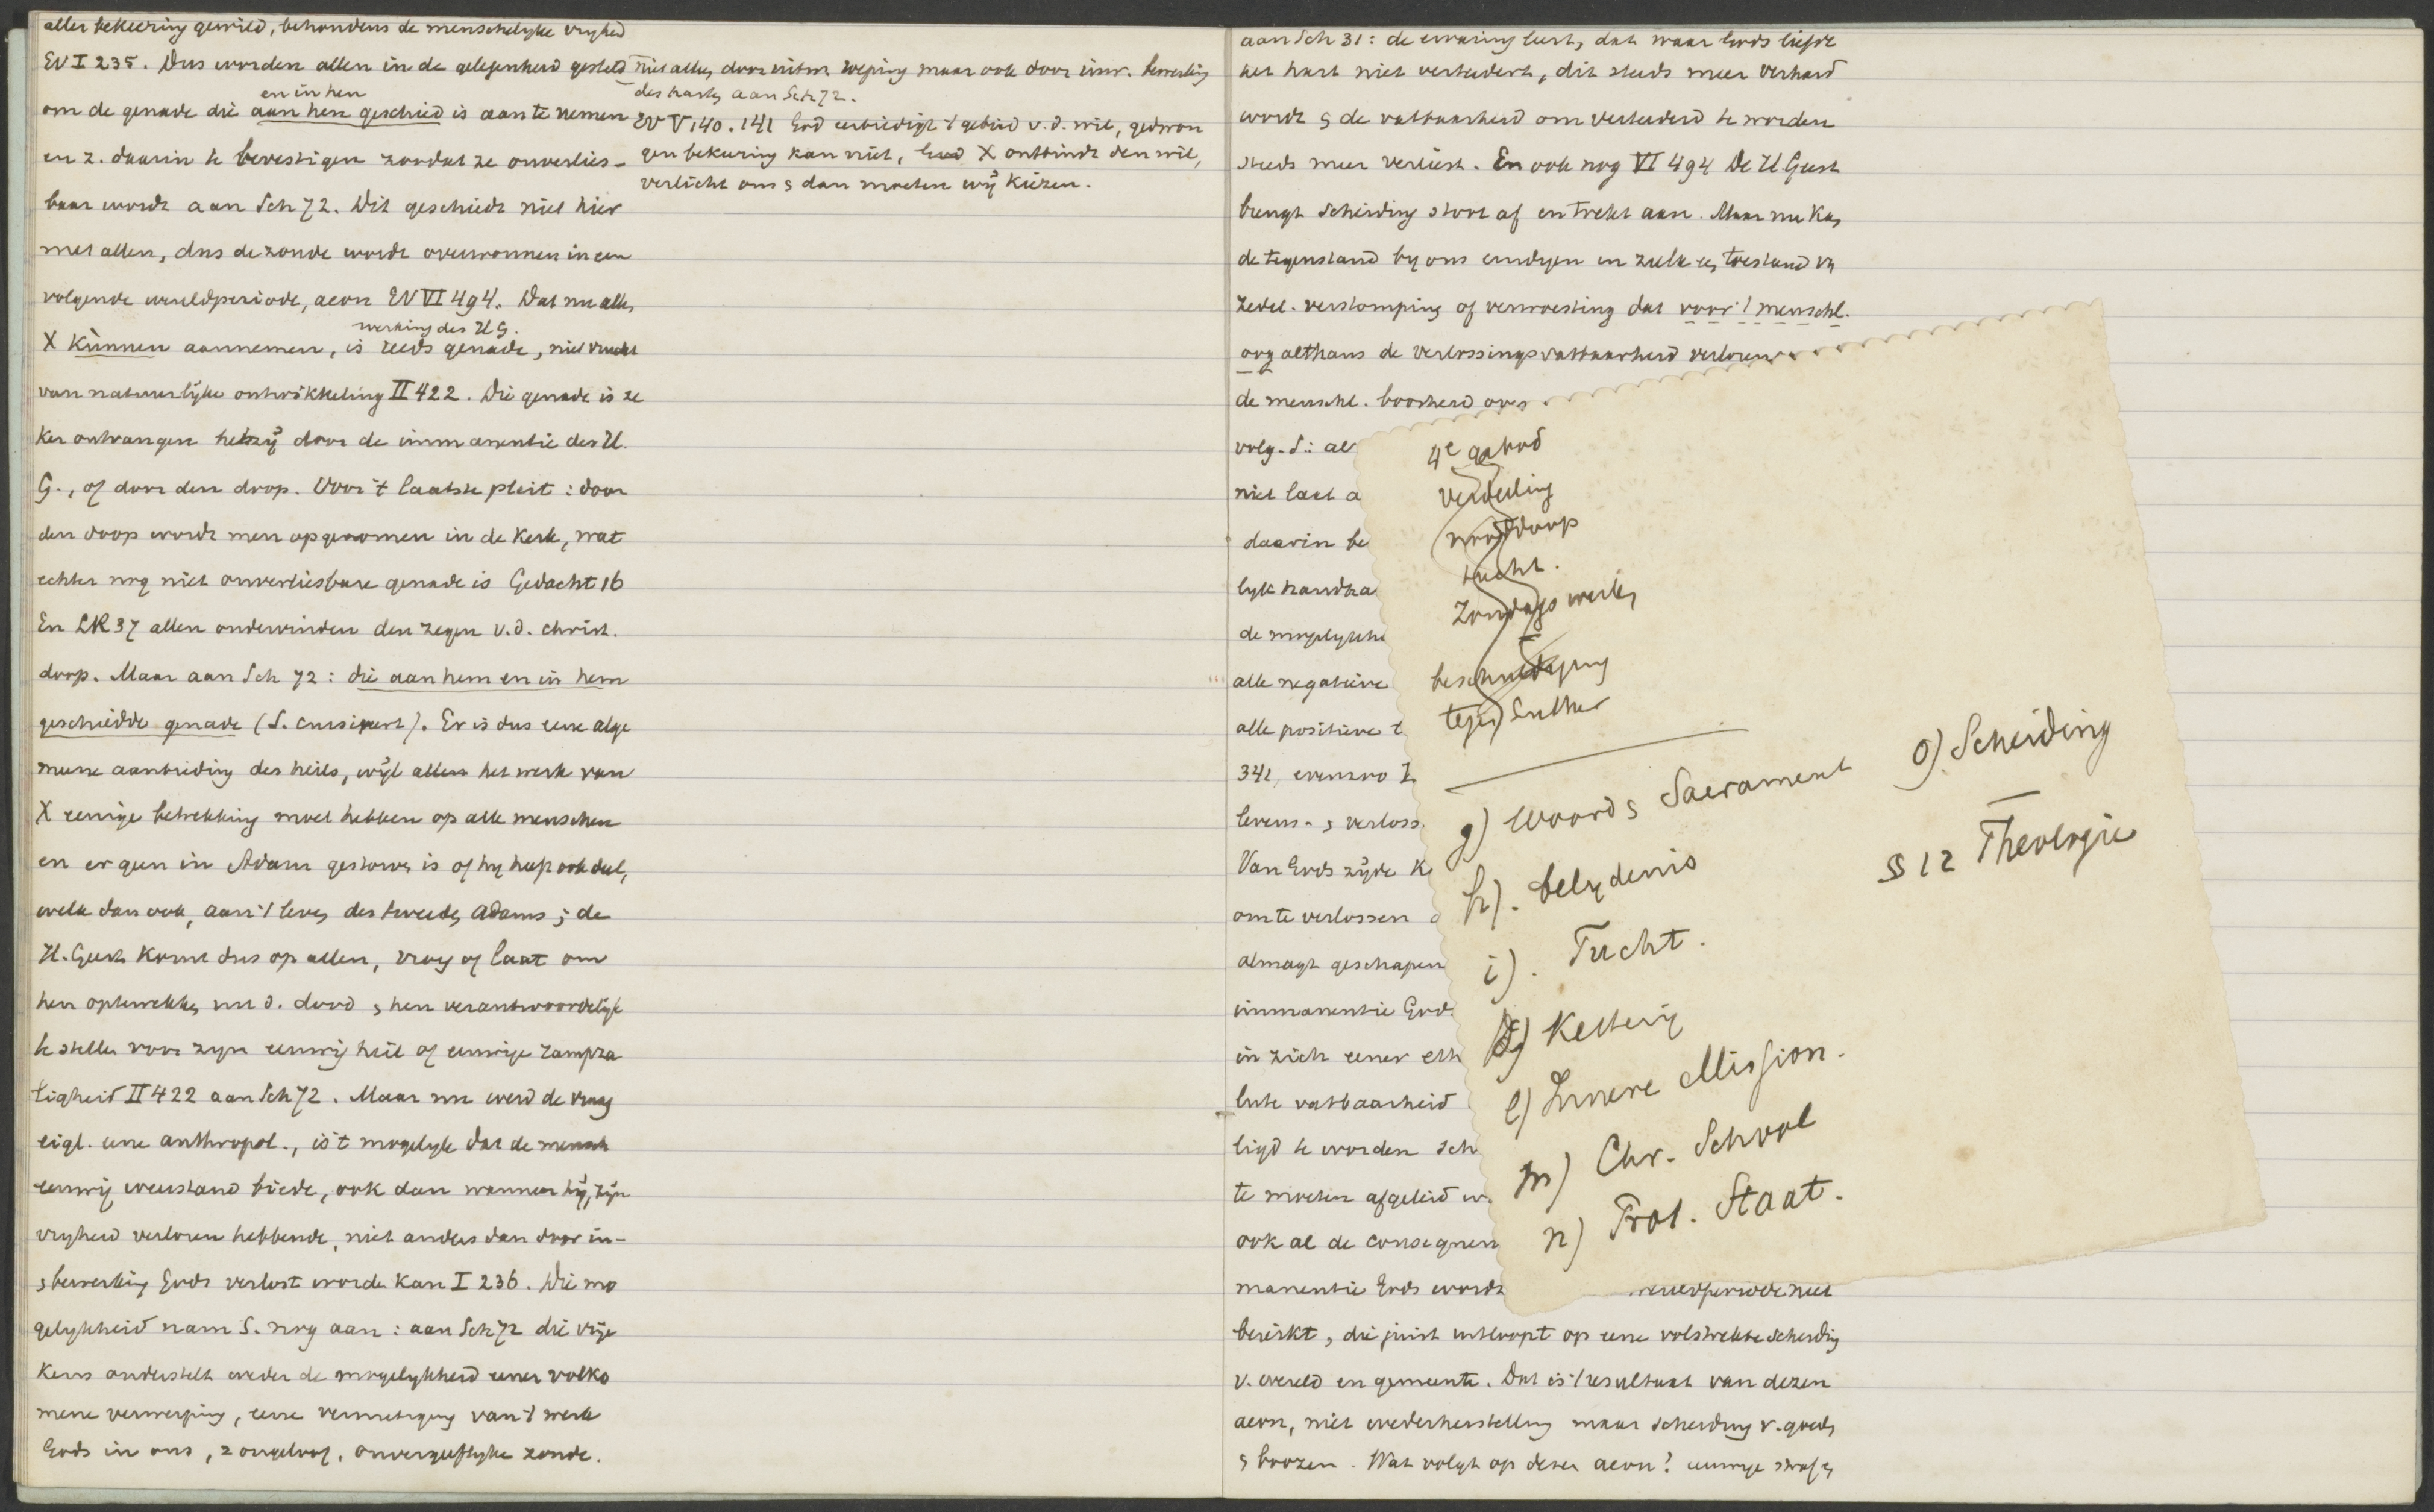 aller bekeering gewild, behoudens de menschelyke vryheid
EV I 235. Dus worden allen in de gelegenheid gesteld
en in hen
om de genade die aan hen geschied is aan te nemen
en z. daarin te bevestigen zoodat ze onverlies-
baar wordt aan Sch 72. Dit geschiedt niet hier
met allen, dus de zonde wordt overwonnen in een
volgende wereldperiode, aeon EV VI 494. Dat nu allen
werking des H G.
X kunnen aannemen, is reeds genade, niet vrucht
van natuurlijke ontwikkeling II 422. Die genade is ze
ker ontvangen hetzij door de immanentie des H.
G., of door den doop. Voor 't laatste pleit: door
den doop wordt men opgenomen in de Kerk, wat
echter nog niet onverliesbare genade is Gedacht 16
En LR 37 allen ondervinden den zegen v.d. christ.
doop. Maar aan Sch 72: die aan hem en in hem
geschiedde genade (S. cursiveert). Er is dus eene alge
meene aanbieding des heils, wijl allen het werk van
X eenige betrekking moet hebben op alle menschen
en er geen in Adam gestorven is of hy heeft ook deel,
welk dan ook, aan 't leven des tweeden Adams; de
H. Geest komt dus op allen, vroeg of laat om
hen optewekken uit d. dood & hen verantwoordelijk
te stellen voor zyn eeuwig heil of eeuwige rampza
ligheid II 422 aan Sch 72. Maar nu werd de vraag
eigl. eene anthropol., is 't mogelyk dat de mensch
eeuwig weerstand biede, ook dan wanneer hij, zijn
vryheid verloren hebbende, niet anders dan door in-
& bewerking Gods verlost worden kan I 236. Die mo
gelykheid nam S. nog aan: aan Sch 72 die vrije
keus onderstelt weder de mogelykheid eener volko
mene verwerping, eene vernietiging van 't werk
Gods in ons, z ongeloof, onvergeeflyke zonde.
niet alleen door uitw. roeping maar ook door inw. bewerking
des harten aan Sch 72.
EV V 140. 141 God eerbiedigt 't gebied v.d. wil, gedwon
gen bekeering kan niet, X ontbindt den wil,
verlicht ons & dan moeten wij kiezen.
aan Sch 31: de ervaring leert, dat waar Gods liefde
het hart niet verteedert, dit steeds meer verhard
wordt & de vatbaarheid om verteederd te worden
steeds meer verliest. En ook nog VI 494 De H Geest
brengt scheiding stoot af en trekt aan. Maar nu kan
de tegenstand by ons eindigen in zulk een toestand van
zedel. verstomping of verwoesting dat voor 't menschl.
oog althans de verlossingsvatbaarheid verloren
de menschl. boosheid over
volg. S: al
niet laat a
daarin be
lyk handha
de mogelykhe
alle negatieve
alle positieve t
341, evenzoo I
levens- & verloss.
Van Gods zijde k
om te verlossen
almagt geschapen
immanentie Gods
in zich eener eth
lute vatbaarheid
ligd te worden sch
te moeten afgeleid w.
ook al de consequen
manentie Gods wordt wereldperiode niet
bereikt, die juist uitloopt op eene volstrekte scheiding
v. wereld en gemeente. Dat is 't resultaat van dezen
aeon, niet wederherstelling maar scheiding v. goeden
& boozen. Wat volgt op dezen aeon? eeuwige straf en
4e gebod
verdeeling
nooddoop
tucht.
Zondagswerk
beschuldiging
tegen Luther
g) Woord & Sacrament
h). belydenis
i). Tucht.
k) Kettery
l) Innere Mission.
m) Chr. School
n) Prot. Staat.
o) Scheiding
§ 12 Theologie